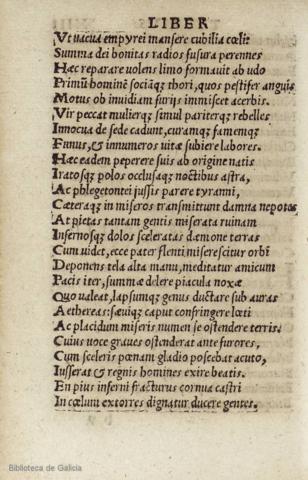 LIBER
Vt uacua empyrei mansere cubilia cœli:
Summa dei bonitas radios fusura perennes
Hæc reparare uolens limo formauit ab udo
Primũ hominẽ sociãq; thori, quos pestifer anguis
Motus ob inuidiam furijs immiscet acerbis.
Vir peccat mulierq; simul pariterq; rebelles
Innocua de sede cadunt, curamq; famemq;
Funus, & innumeros vitæ subiere labores.
Hæc eadem peperere suis ab origine natis
Iratosq; polos occlusaq; noctibus astra,
Ac phlegetontei iussis parere tyranni,
Cæteraq; in miseros transmittunt damna nepotes
At pietas tantam gentis miserata ruinam
Infernosq; dolos sceleratas dæmone terras
Cum uidet, ecce pater flenti miserescitur orbi
Deponens tela alta manu, meditatur amicum
Pacis iter, summæ delere piacula noxæ
Quo ualeat, lapsumq; genus ductare sub auras
Aethereas: sæuiq; caput confringere læti
Ac placidum miseris numen se ostendere terris.
Cuius uoce graues ostenderat ante furores,
Cum sceleris pœnam gladio poscebat acuto,
Iusserat & regnis homines exire beatis.
En pius inferni fracturus cornua castri
In cœlum extorres dignatur ducere gentes.
Biblioteca de Galicia